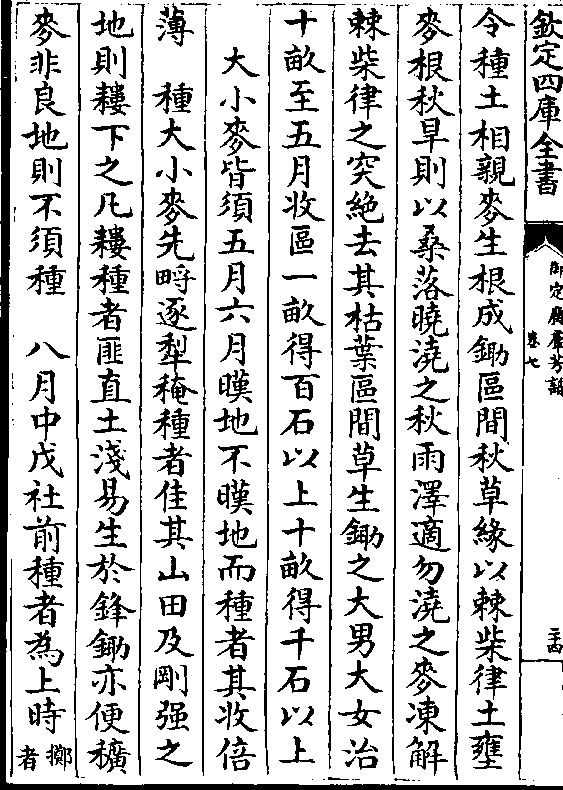 欽定四庫全書
御定廣羣芳譜
卷七
三十四
令種土相親麥生根成鋤區間秋草緣以棘柴律土壅
麥根秋旱則以桑落曉澆之秋雨澤適勿澆之麥凍解
棘柴律之突絶去其枯葉區間草生鋤之大男大女治
十畝至五月收區一畝得百石以上十畝得千石以上
大小麥皆須五月六月暵地不暵地而種者其收倍
薄　種大小麥先㽟逐犁稚種者佳其山田及剛强之
地則耬下之凡耬種者匪直土淺易生於鋒鋤亦便穬
麥非良地則不須種　八月中戊社前種者為上時擲者